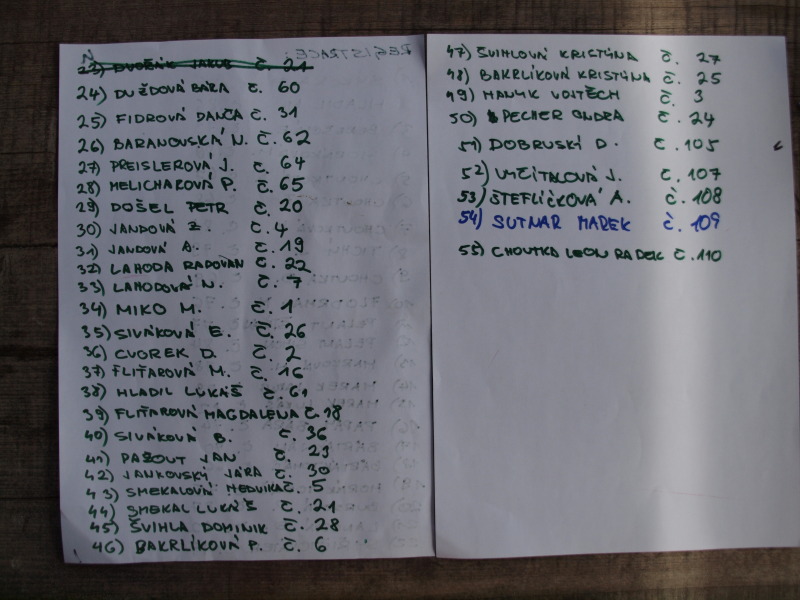 23) DVOŘÁK JAKUB č. 21
24) DUŽDOVÁ BÁRA č. 60
25) FIDROVÁ DANČA č. 31
26) BARANOVSKÁ N. č. 62
27) PREISLEROVÁ J. č. 64
28) MELICHAROVÁ P. č. 65
29) DOŠEL PETR č. 20
30) JANDOVÁ Z. č. 4
31) JANDOVÁ A. č. 19
32) LAHODA RADOVAN č. 22
33) LAHODOVÁ N. č. 7
34) MIKO M. č. 1
35) SIVÁKOVÁ E. č. 26
36) CVOREK D. č. 2
37) FLIŤAROVÁ M. č. 16
38) HLADIL LUKÁŠ č. 61
39) FLIŤAROVÁ MAGDALENA č. 18
40) SIVÁKOVÁ B. č. 36
41) PAŠOUT JAN č. 23
42) JANKOVSKÝ JÁRA č. 30
43) SMEKALOVÁ HEDVIKA č. 5
44) SMEKAL LUKÁŠ č. 21
45) ŠVIHLA DOMINIK č. 28
46) BAKRLÍKOVÁ P. č. 6
REGISTRACE:
47) ŠVIHLOVÁ KRISTÝNA č. 27
48) BAKRLÍKOVÁ KRISTÝNA č. 25
49) HANYK VOJTĚCH č. 3
50) PECHER ONDRA č. 24
51) DOBRUSKÝ D. č. 105
52) VYČÍTALOVÁ J. č. 107
53) ŠTEFLÍČKOVÁ A. č. 108
54) SUTNAR MAREK č. 109
55) CHOUTKA LEON RADEK č. 110